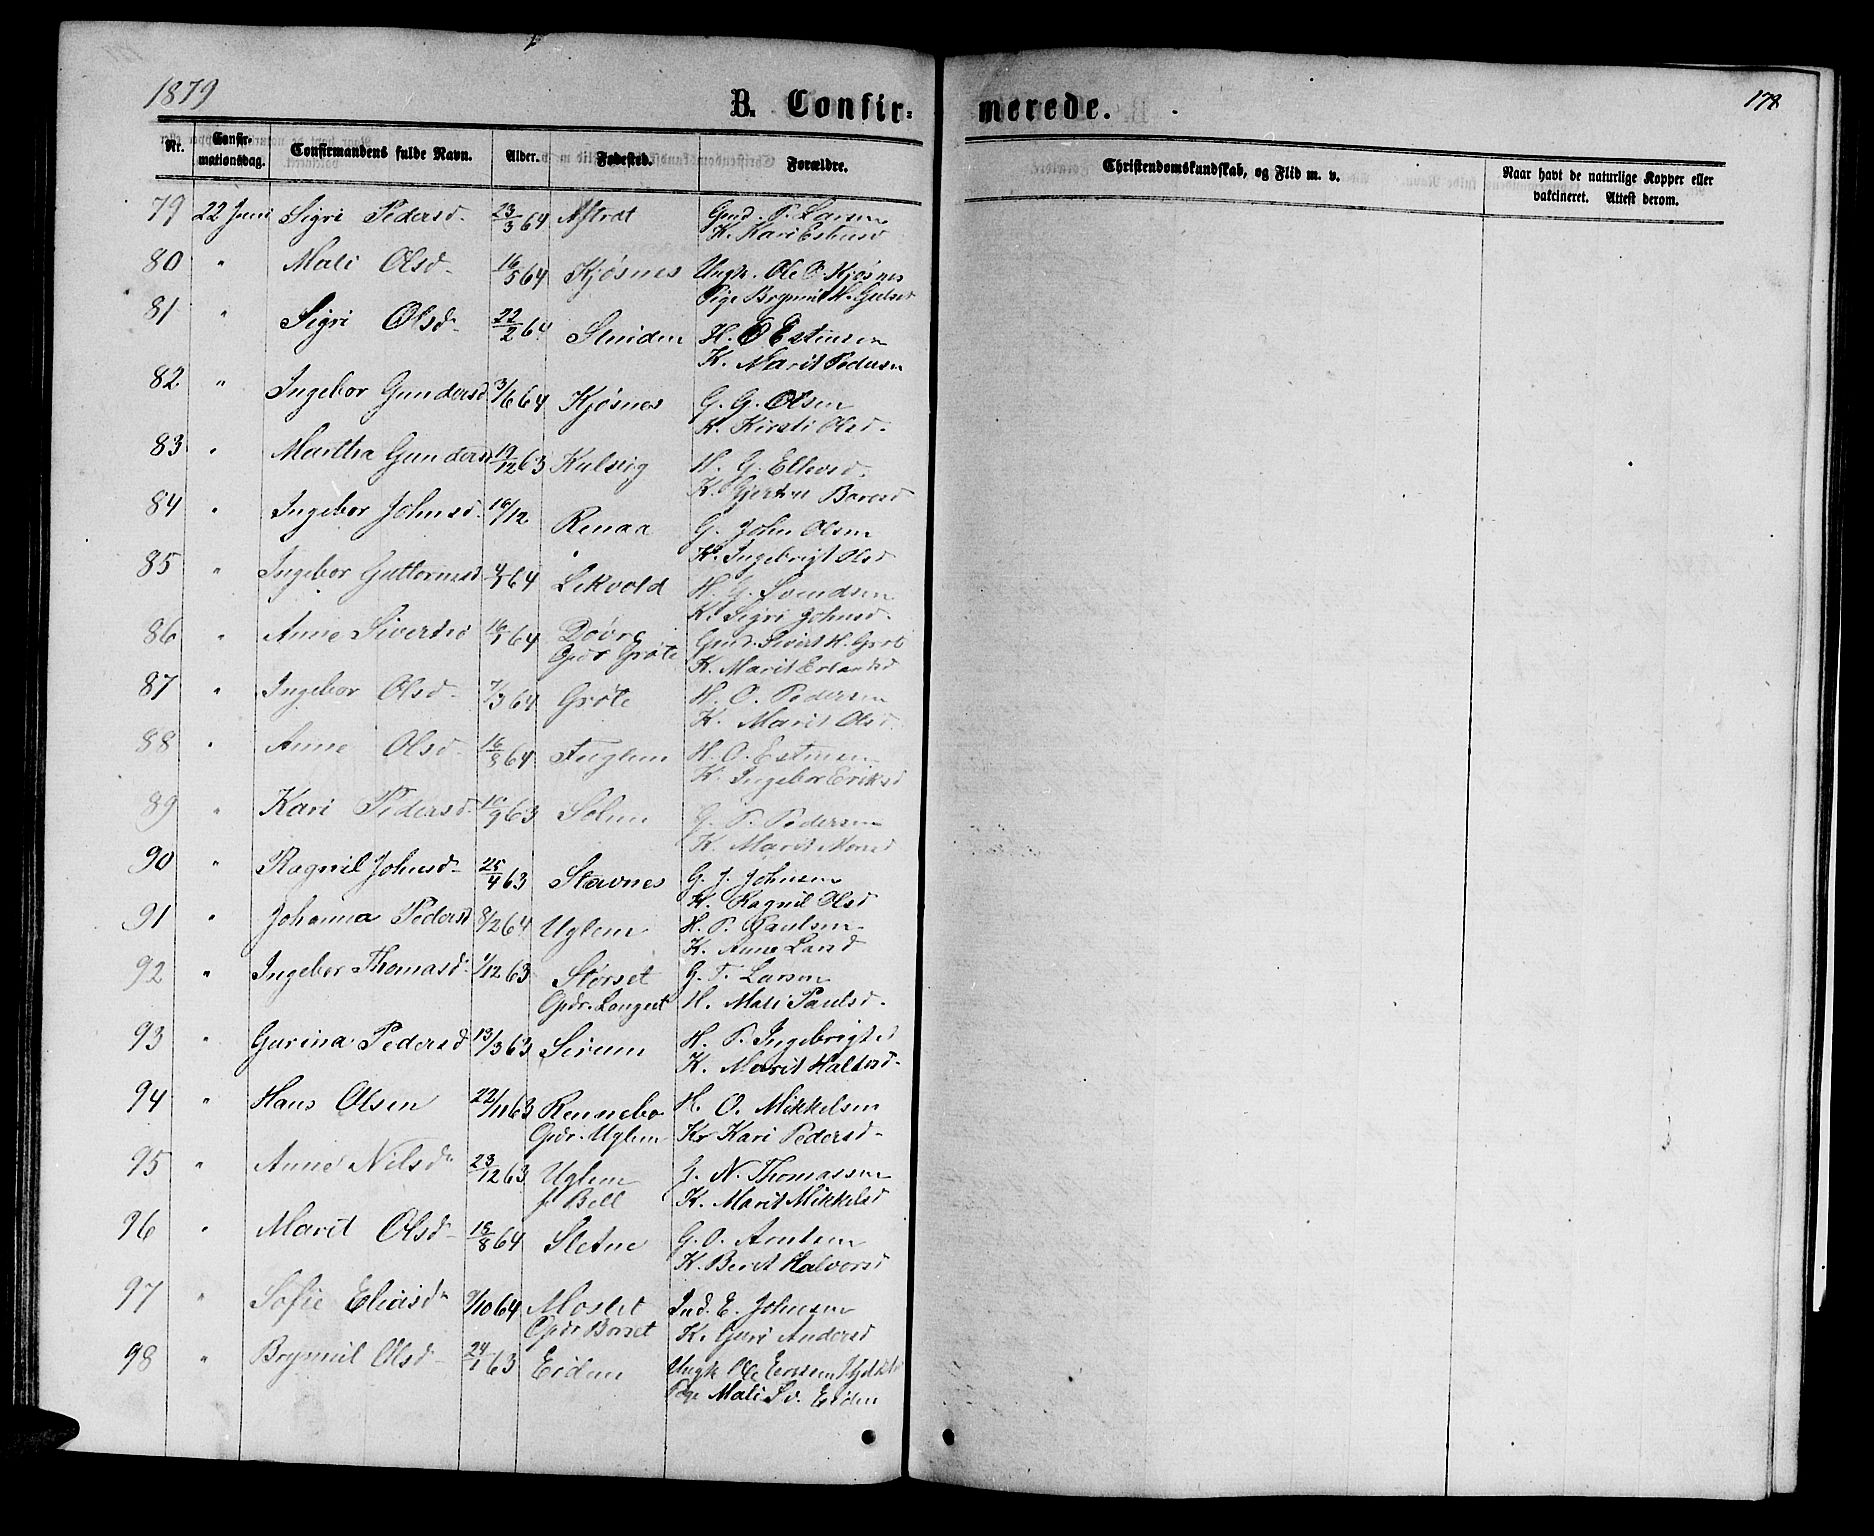 1879
B. Confir=
merede.
178
Nr.
Confirmationsdag.
Confirmandens fulde Navn.
Alder.
Fødested.
Forældre.
Christendomskundskab, og Flid m. v.
Naar havt de naturlige Kopper eller
vakcineret. Attest derom.
79 22 Juni Sigri Pedersd. 23/3 64 Gmd. P. Larsen
K. Kari Estensd
80 " Mali Olsd. 16/5 64 Kjøsnes Ungk. Ole O. Kjøsnes
Pige Brynnil
81 " Sigri Olsd. 22/2 64 H. O Estensen
K. Marit Pedersen
82. " Ingebor Gundersd 3/6 64 Kjøsnes G. G. Olsen
K. Kirsti Olsd.
83 " Martha Gundersd 19/12 63 Kulseig H. G.
K.
84 " Ingebor Johnsd. 10/12 Renaa G. John Olsen
K. Ingebrigt Olsd
85 " Ingebor Guttormsd 64 Lekvold H. G. Svendsen
K. Sigri Johnsd.
86 " Anne Sivertsd 64 Dovre Gmd. Sivert H. Grøt
Opdr Grøte K. Marit Erlandsd
87 " Ingebor Olsd. 7/3 64 Grøte H. O. Pedersen
K. Marit Olsd
88 " Anne Olsd. 16/8 64 Fuglem H. O. Estensen
K. Ingebor Eriksd
89 " Kari Pedersd. 10/9 63 Solem G. P. Pedersen
K. Marit Monsd
90 " Ragnil Johnsd. 25/4 63 Stavnes G. J. Johnsen
K. Ragnil Olsd
91 " Johanna Pedersd 8/2 64 Uglem H. P. Paulsen
K. Anne Larsd
92 " Ingebor Thomasd. 1/12 63 Størset G. T. Larsen
Opdr. Langset H. Mali Paulsd.
93 " Gurina Pedersd 13/3 63 Sirum H. P. Ingebrigts
K. Marit Haltosd.
94 " Hans Olsen 22/11 63 Rennebo H. O. Mikkelsen
Opdr. Uglem K. Kari Pedersd.
95 " Anne Nilsd. 23/12 63 Uglem G. N. Thomassen
K. Marit Mikkelsd
96 " Marit Olsd. 18/8 64 Sletne G. O. Arntsen
K. Berit Halvorsd
97 " Sofie Eliasd. 9/10 64 Moslet Ind. E. Johnsen
Opdr Borset K. Guri Andersd
98 " Brynnil Olsd. 24/1 63 Eidem Ungk Ole
Pige Mali Eidem